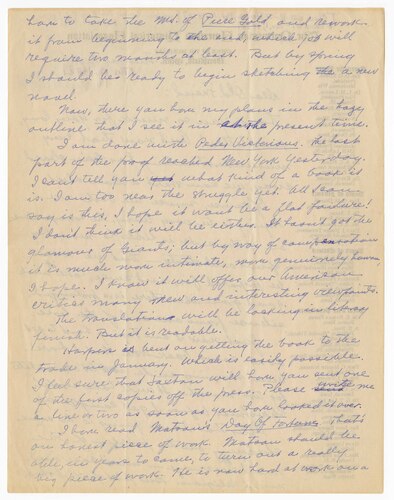 have to take the Ms. of Pure Gold and rework
it from beginning to the end, which job will
require two months at least. But by spring
I should be ready to begin sketching a new
novel.
Now, there you have my plans in the hazy
outline that I see it in at the present time.
I am done with Peder Victorious. The last
part of the proof reached New York yesterday.
I can't tell you yet what kind of a book it
is. I am too near the struggle yet. All I can
say is this, I hope it want be a flat failure!
I don't think it will be either. It hasn't got the
glamour of Giants; but by way of compensation
it is much more intimate, more genuinely human
I hope. I know it will offer our American
critics many new and interesting viewpoints.
The translation will be lacking in
finish. But it is readable.
Harpers is bent on getting the book to the
trade in January. Which is easily possible.
I feel sure that Saxton will have you sent one
of the first copies off the press. Please write me
a line or two as soon as you have looked it over.
I have read Matson's Day of Fortune. That's
an honest piece of work. Matson should be
able, in years to come, to turn out a really
big piece of work. He is now hard at work on a